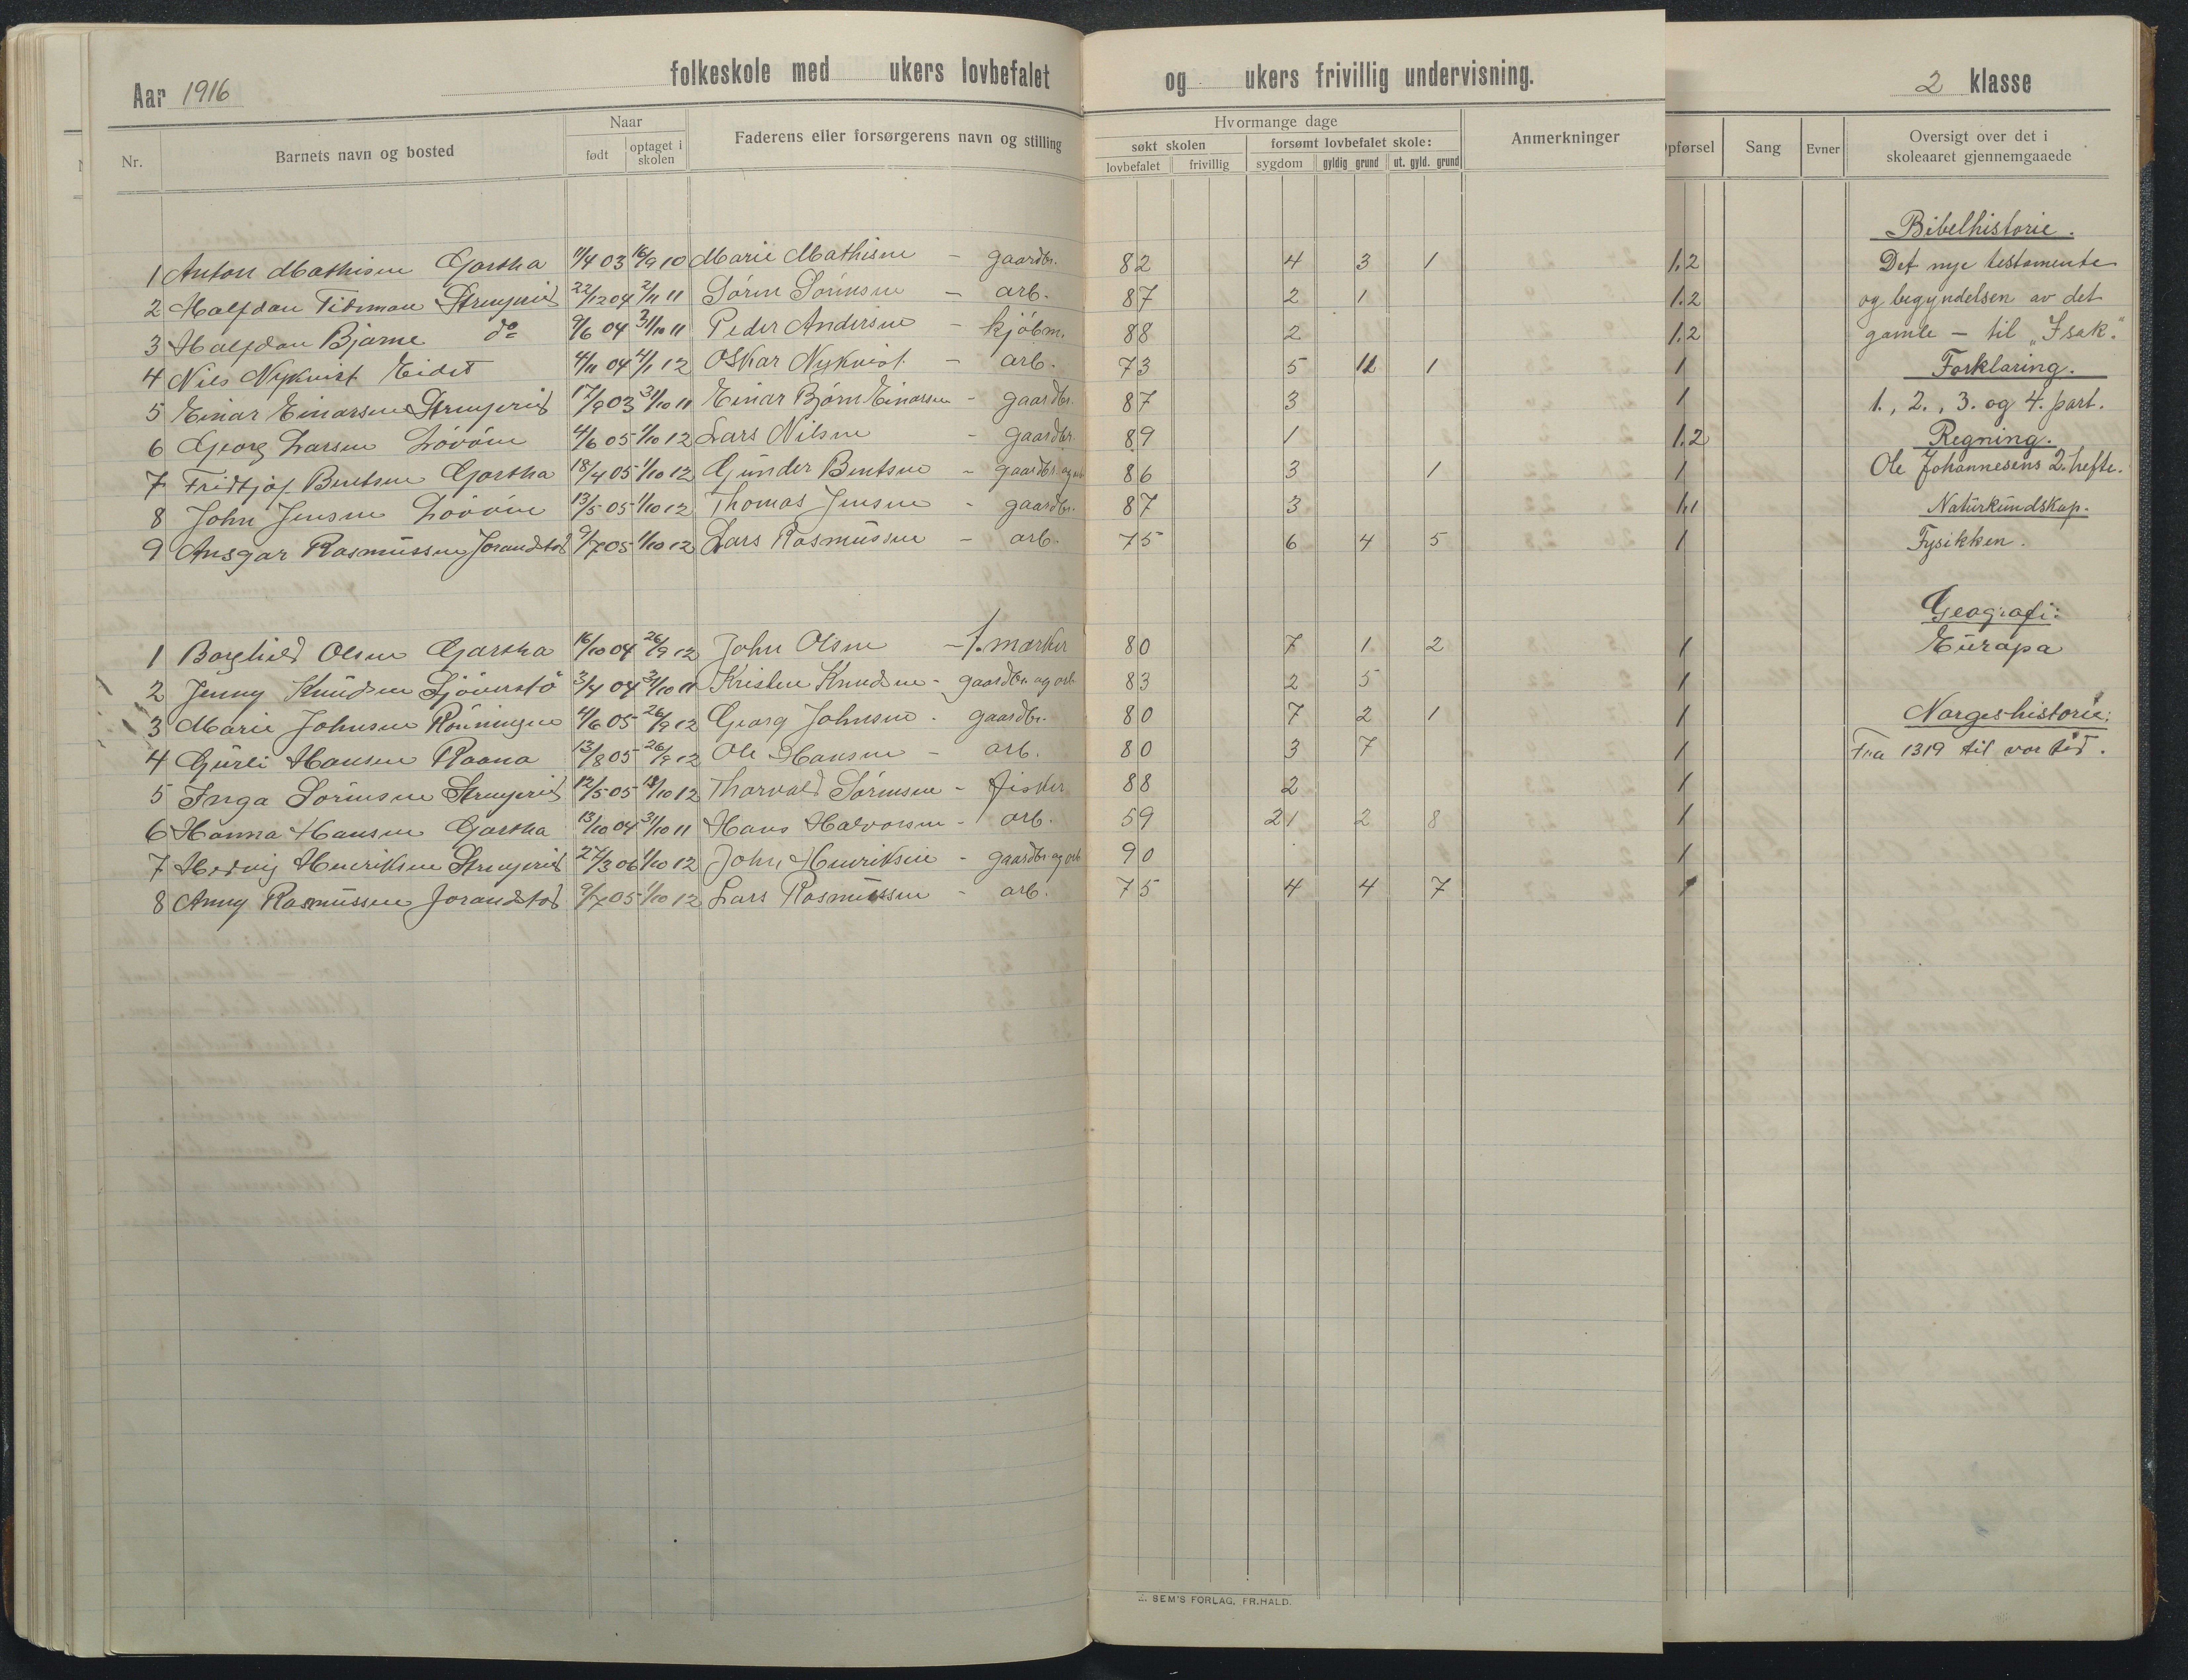 Aar 1916 folkeskole med ukers lovbefalet og ukers frivillig undervisning. 2 klasse
Nr. Barnets navn og bosted Naar født optaget i skolen Faderens eller forsørgerens navn og stilling Hvormange dage søkt skolen lovbefalet frivillig forsømt lovbefalet skole: sygdom gyldig grund ut. gyld. grund Anmerkninger pførsel Sang Evner Oversigt over det i skoleaaret gjennemgaaede
Bibelhistorie.
1 Anton Mathisen Gartha 11/4 03 16/9 10 Marie Mathisen - gaardbr. 82 4 3 1 1.2 Det nye testamente
2 Halfdan Tideman 22/12 04 2/11 11 Søren Sørensen - arb. 87 2 1 1.2 og begyndelsen av det
3 Halfdan Bjarne do 9/6 04 31/10 11 Peder Andersen - kjöbm. 88 2 1.2 gamle - til "Isak".
4 Nils Nykvist Eidet 4/11 04 4/1 12 Oskar Nykvist - arb. 73 5 11 1 1 Forklaring.
5 Einar Einarsen 17/9 03 31/10 11 Einar Bjørn Einarsen - gaardbr. 87 3 1 1., 2., 3. og 4. part.
6 Georg Larsen 4/6 05 1/10 12 Lars Nilsen - gaardbr. 89 1 1.2 Regning.
7 Fridtjof Bentsen Gartha 18/4 05 1/10 12 Gunder Bentsen - gaardbr. og arb 86 3 1 1 Ole Johannesens 2. hefte.
8 John Jensen 13/5 05 1/10 12 Thomas Jensen - gaardbr. 87 3 1.1 Naturkundskap.
9 Ansgar Rasmussen Jorandstad 9/7 05 1/10 12 Lars Rasmussen - arb. 75 6 4 5 1 Fysikken.
Geografi:
1 Borghild Olsen Gartha 16/10 04 26/9 12 John Olsen - 80 7 1 2 1 Europa
2 Jenny Knudsen 3/4 04 31/10 11 Kristen Knudsen - gaardbr. og arb. 83 2 5 1
3 Marie Johnsen Röningen 4/6 05 26/9 12 Georg Johnsen - gaardbr. 80 7 2 1 1 Norgeshistorie:
4 Gurli Hansen Raana 13/8 05 26/9 12 Ole Hansen - arb. 80 3 7 1 Fra 1319 til vor tid.
5 Inga Sörensen 12/5 05 18/10 12 Thorvald Sørensen - fisker 88 2 1
6 Hanna Hansen Gartha 13/10 04 31/10 11 Hans Halvorsen - arb. 59 21 2 8 1
7 Hedvig Henriksen 27/3 06 1/10 12 John Henriksen - gaardbr. og arb 90 1
8 Anny Rasmussen Jorandstad 9/7 05 1/10 12 Lars Rasmussen - arb. 75 4 4 7 1
SEM'S FORLAG, FR.HALD.